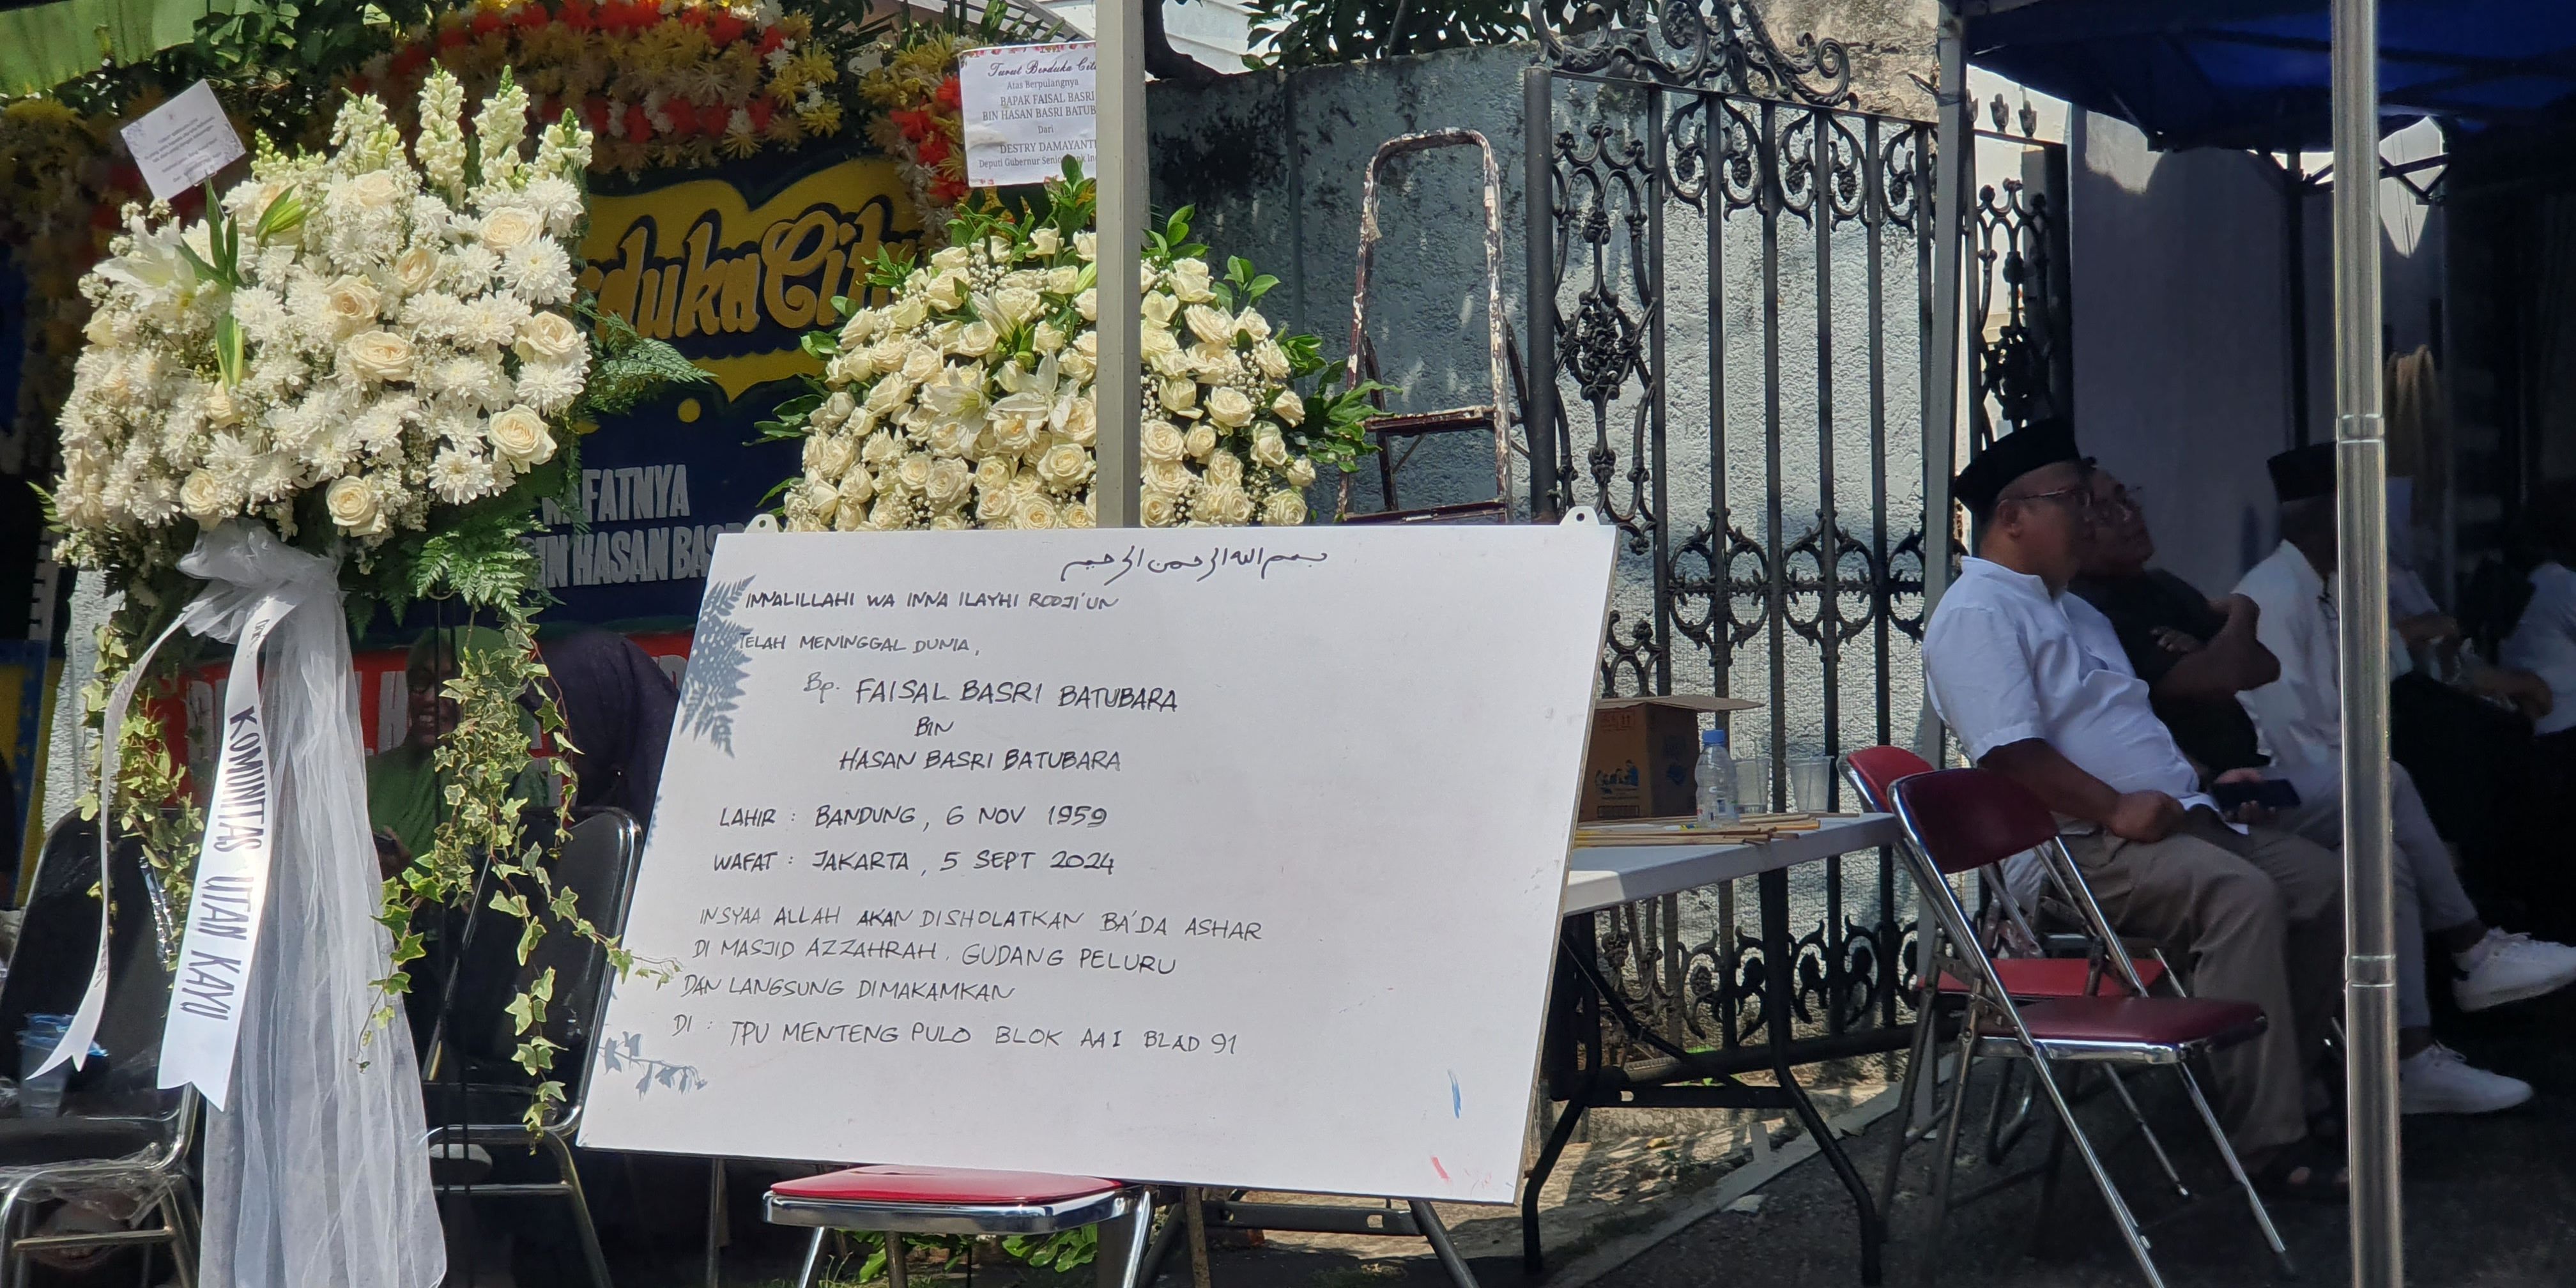 Turut Berduka
Atas Berpulangnya
BAPAK FAISAL BASRI
BIN HASAN BASRI BATUB
Dari
DESTRY DAMAYANTI
Deputi Gubernur Senio nk In
erduka Cit
AFATNYA
BIN HASAN BAS
KOMUNITAS UTAN KAYU
بسم الله الرحمن الرحيم
INNALILLAHI WA INNA ILAYHI RODJI'UN
TELAH MENINGGAL DUNIA,
Bp. FAISAL BASRI BATUBARA
BIN
HASAN BASRI BATUBARA
LAHIR : BANDUNG, 6 NOV 1959
WAFAT : JAKARTA, 5 SEPT 2024
INSYAA ALLAH AKAN DISHOLATKAN BA'DA ASHAR
DI MASJID AZZAHRAH. GUDANG PELURU
DAN LANGSUNG DIMAKAMKAN
DI : TPU MENTENG PULO BLOK AA I BLAD 91